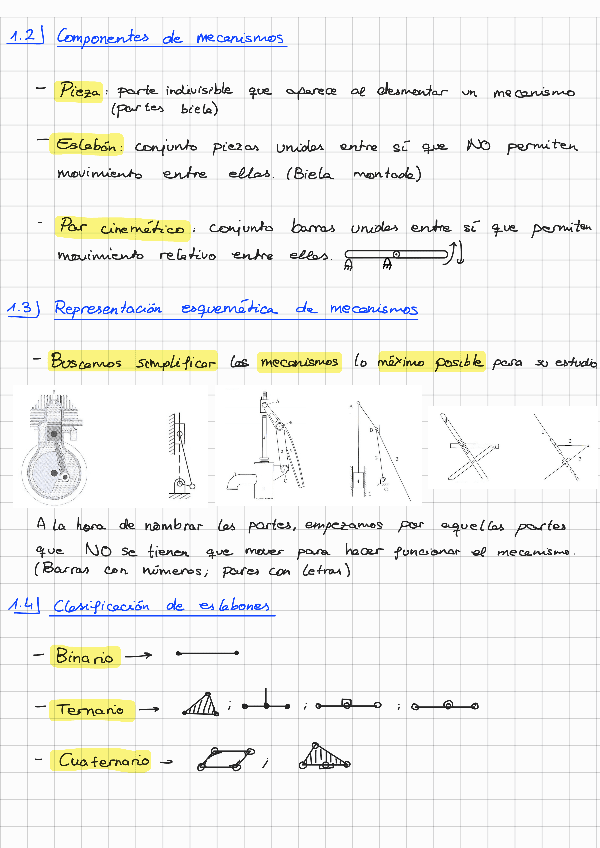 1.2) Componentes de mecanismos
- Pieza: parte indivisible que aparece al desmontar un mecanismo
(partes biela)
- Eslabón: conjunto piezas unidas entre sí que NO permiten
movimiento entre ellas. (Biela montada)
- Par cinemático: conjunto barras unidas entre sí que permiten
movimiento relativo entre ellas.
1.3) Representación esquemática de mecanismos
- Buscamos simplificar los mecanismos lo máximo posible para su estudio
A la hora de nombrar las partes, empezamos por aquellas partes
que NO se tienen que mover para hacer funcionar el mecanismo.
(Barras con números; pares con letras)
1.4) Clasificación de eslabones
- Binario →
- Ternario → ; ; ;
- Cuaternario → ;